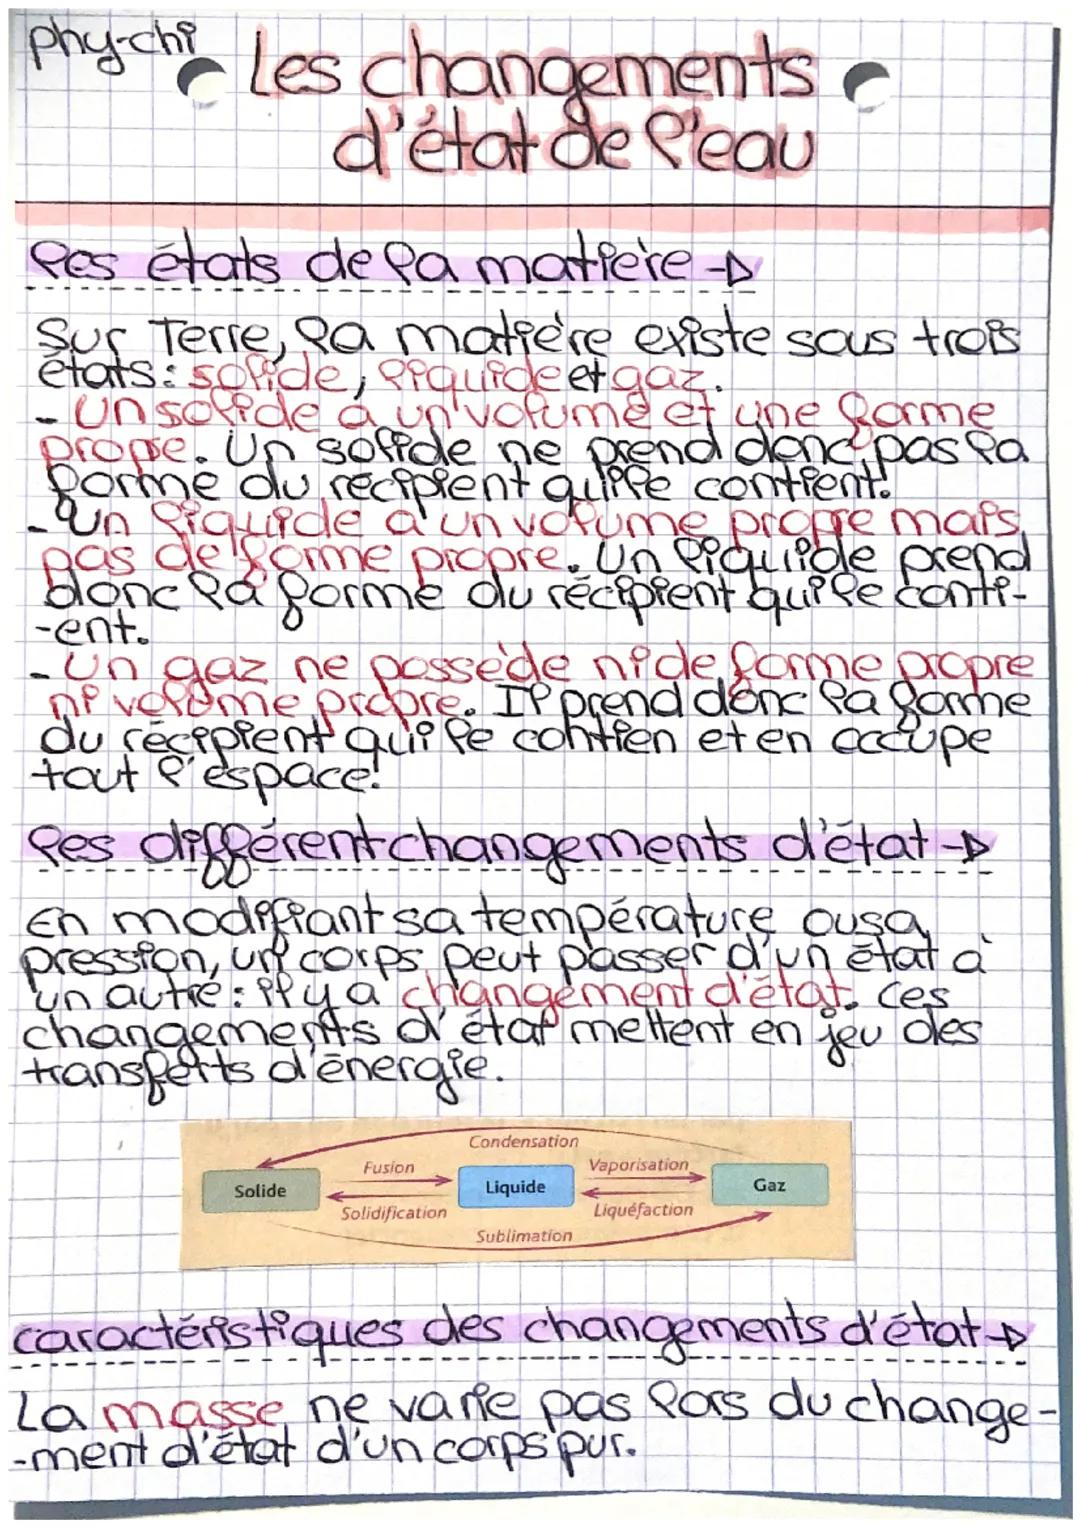 phy-chi
Les changements
d'état de l'eau
les états de la matière
Sur Terre, la matière existe sous trois
états : solide, liquide et gaz.
- Un solide a un volume et une forme
propre. Un solide ne prend donc pas la
forme du récipient qui le contient.
- Un liquide a un volume propre mais
pas de forme propre. Un liquide prend
donc la forme du récipient qui le conti-
-ent.
- Un gaz ne possède ni de forme propre
ni volume propre. Il prend donc la forme
du récipient qui le contien et en occupe
tout l'espace.
les différent changements d'état
En modifiant sa température ou sa
pression, un corps peut passer d'un état à
un autre : il y a changement d'état. Ces
changements d'état mettent en jeu des
transferts d'énergie.
Condensation
Fusion
Vaporisation
Solide
Liquide
Gaz
Solidification
Liquéfaction
Sublimation
caractéristiques des changements d'état
La masse ne varie pas lors du change-
-ment d'état d'un corps pur.